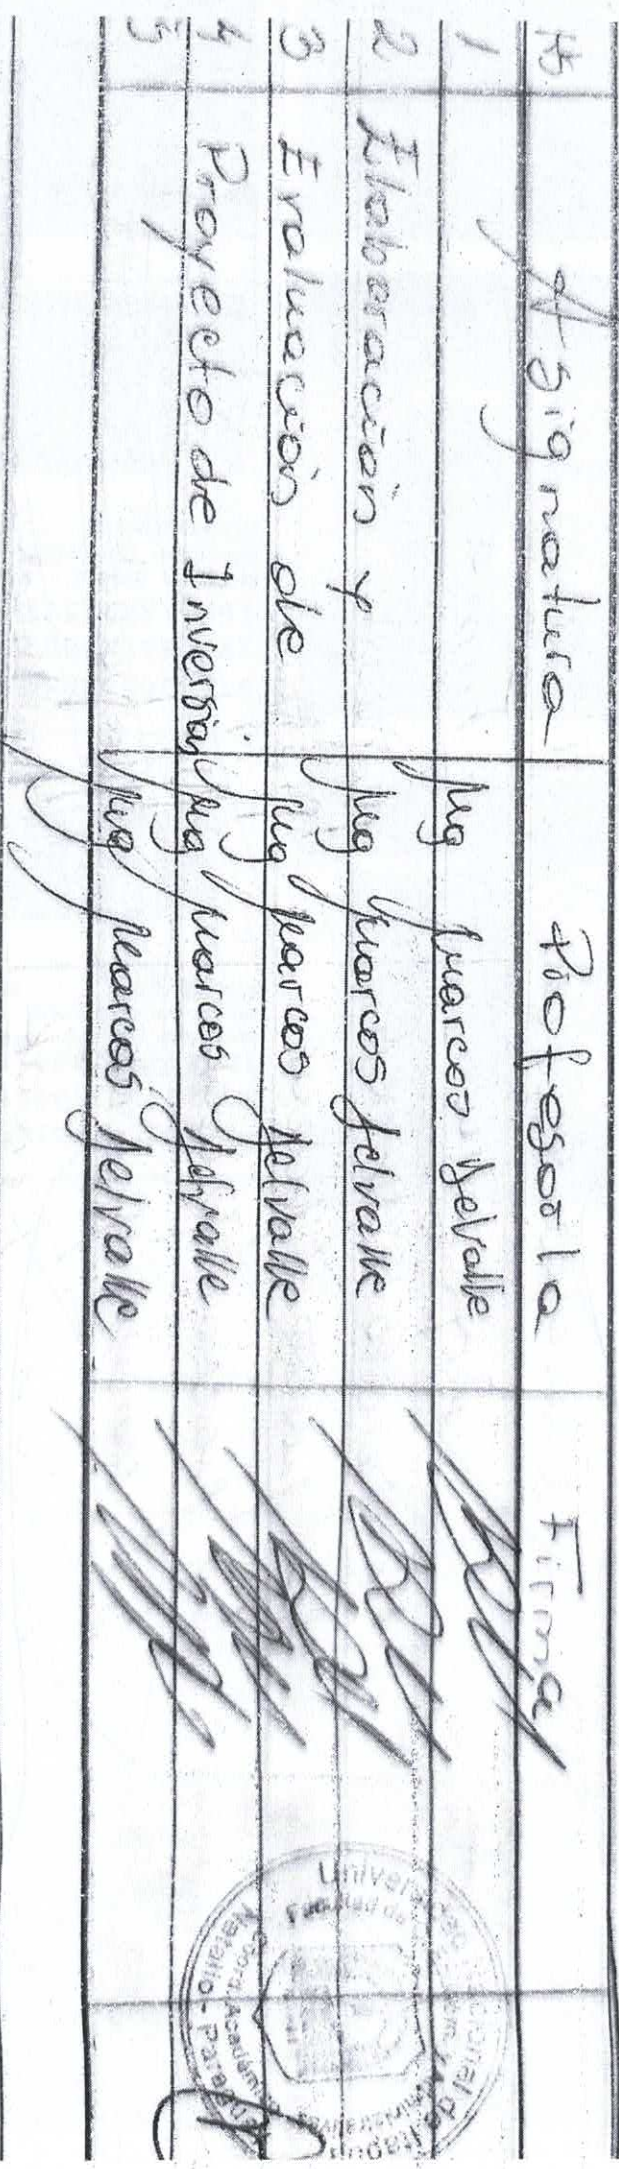 Hs Asignatura Profesor/a Firma
1 Mg Marcos Delvalle
2 Elaboración y Mg Marcos Delvalle
3 Evaluación de Mg Marcos Delvalle
4 Proyecto de Inversión Mg Marcos Delvalle
5 Mg Marcos Delvalle
Universidad Nacional de Itapúa
Facultad de
Coord. Académica
Natalio - Paraguay